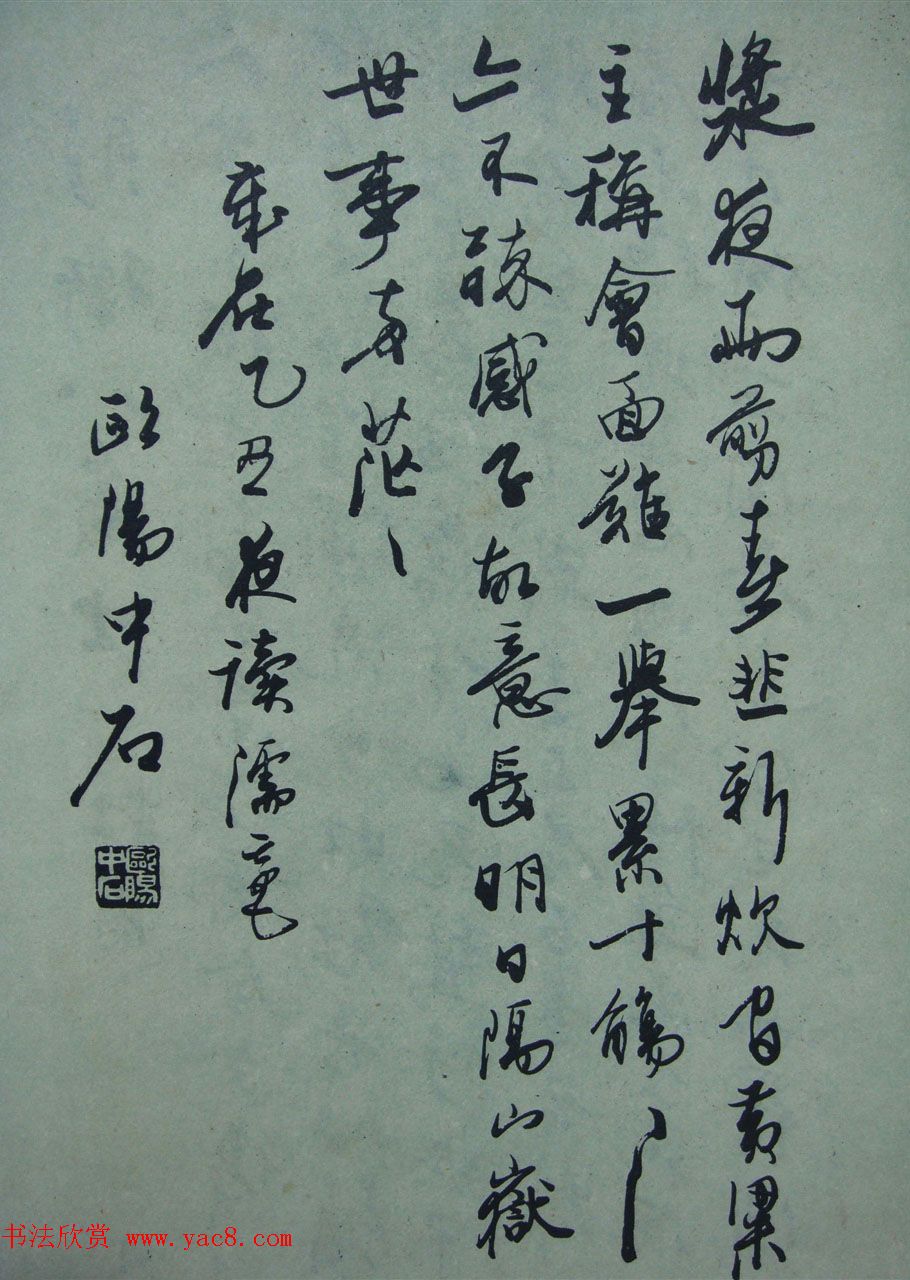 漿夜雨剪春韭新炊間黄粱
主稱會面難一舉累十觴〻十
亦不醉感子故意長明日隔山嶽
世事两茫〻
歲在乙丑夜读濡毫
歐陽中石
歐陽中石
书法欣赏 www.yac8.com